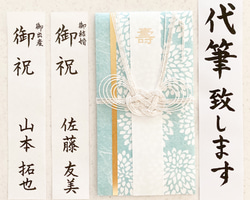 代筆致します
寿
御結婚
御祝
佐藤友美
御出産
御祝
山本拓也